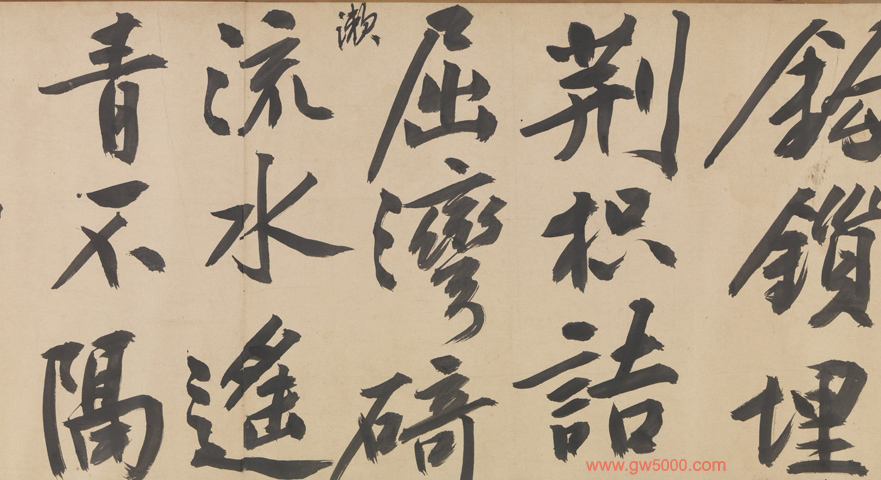 鎖埋
荆枳詰
屈灣碕
瀨
流水遙
青不隔
www.gw5000.com